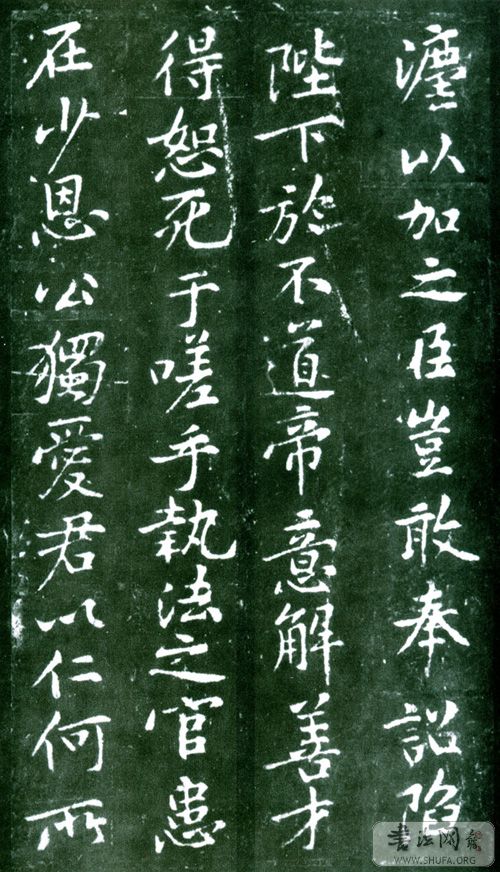 灋以加之臣豈敢奉詔陷
陛下於不道帝意解善才
得恕死于嗟乎執法之官患
在少恩公獨愛君以仁何所
书法网
WWW.SHUFA.ORG